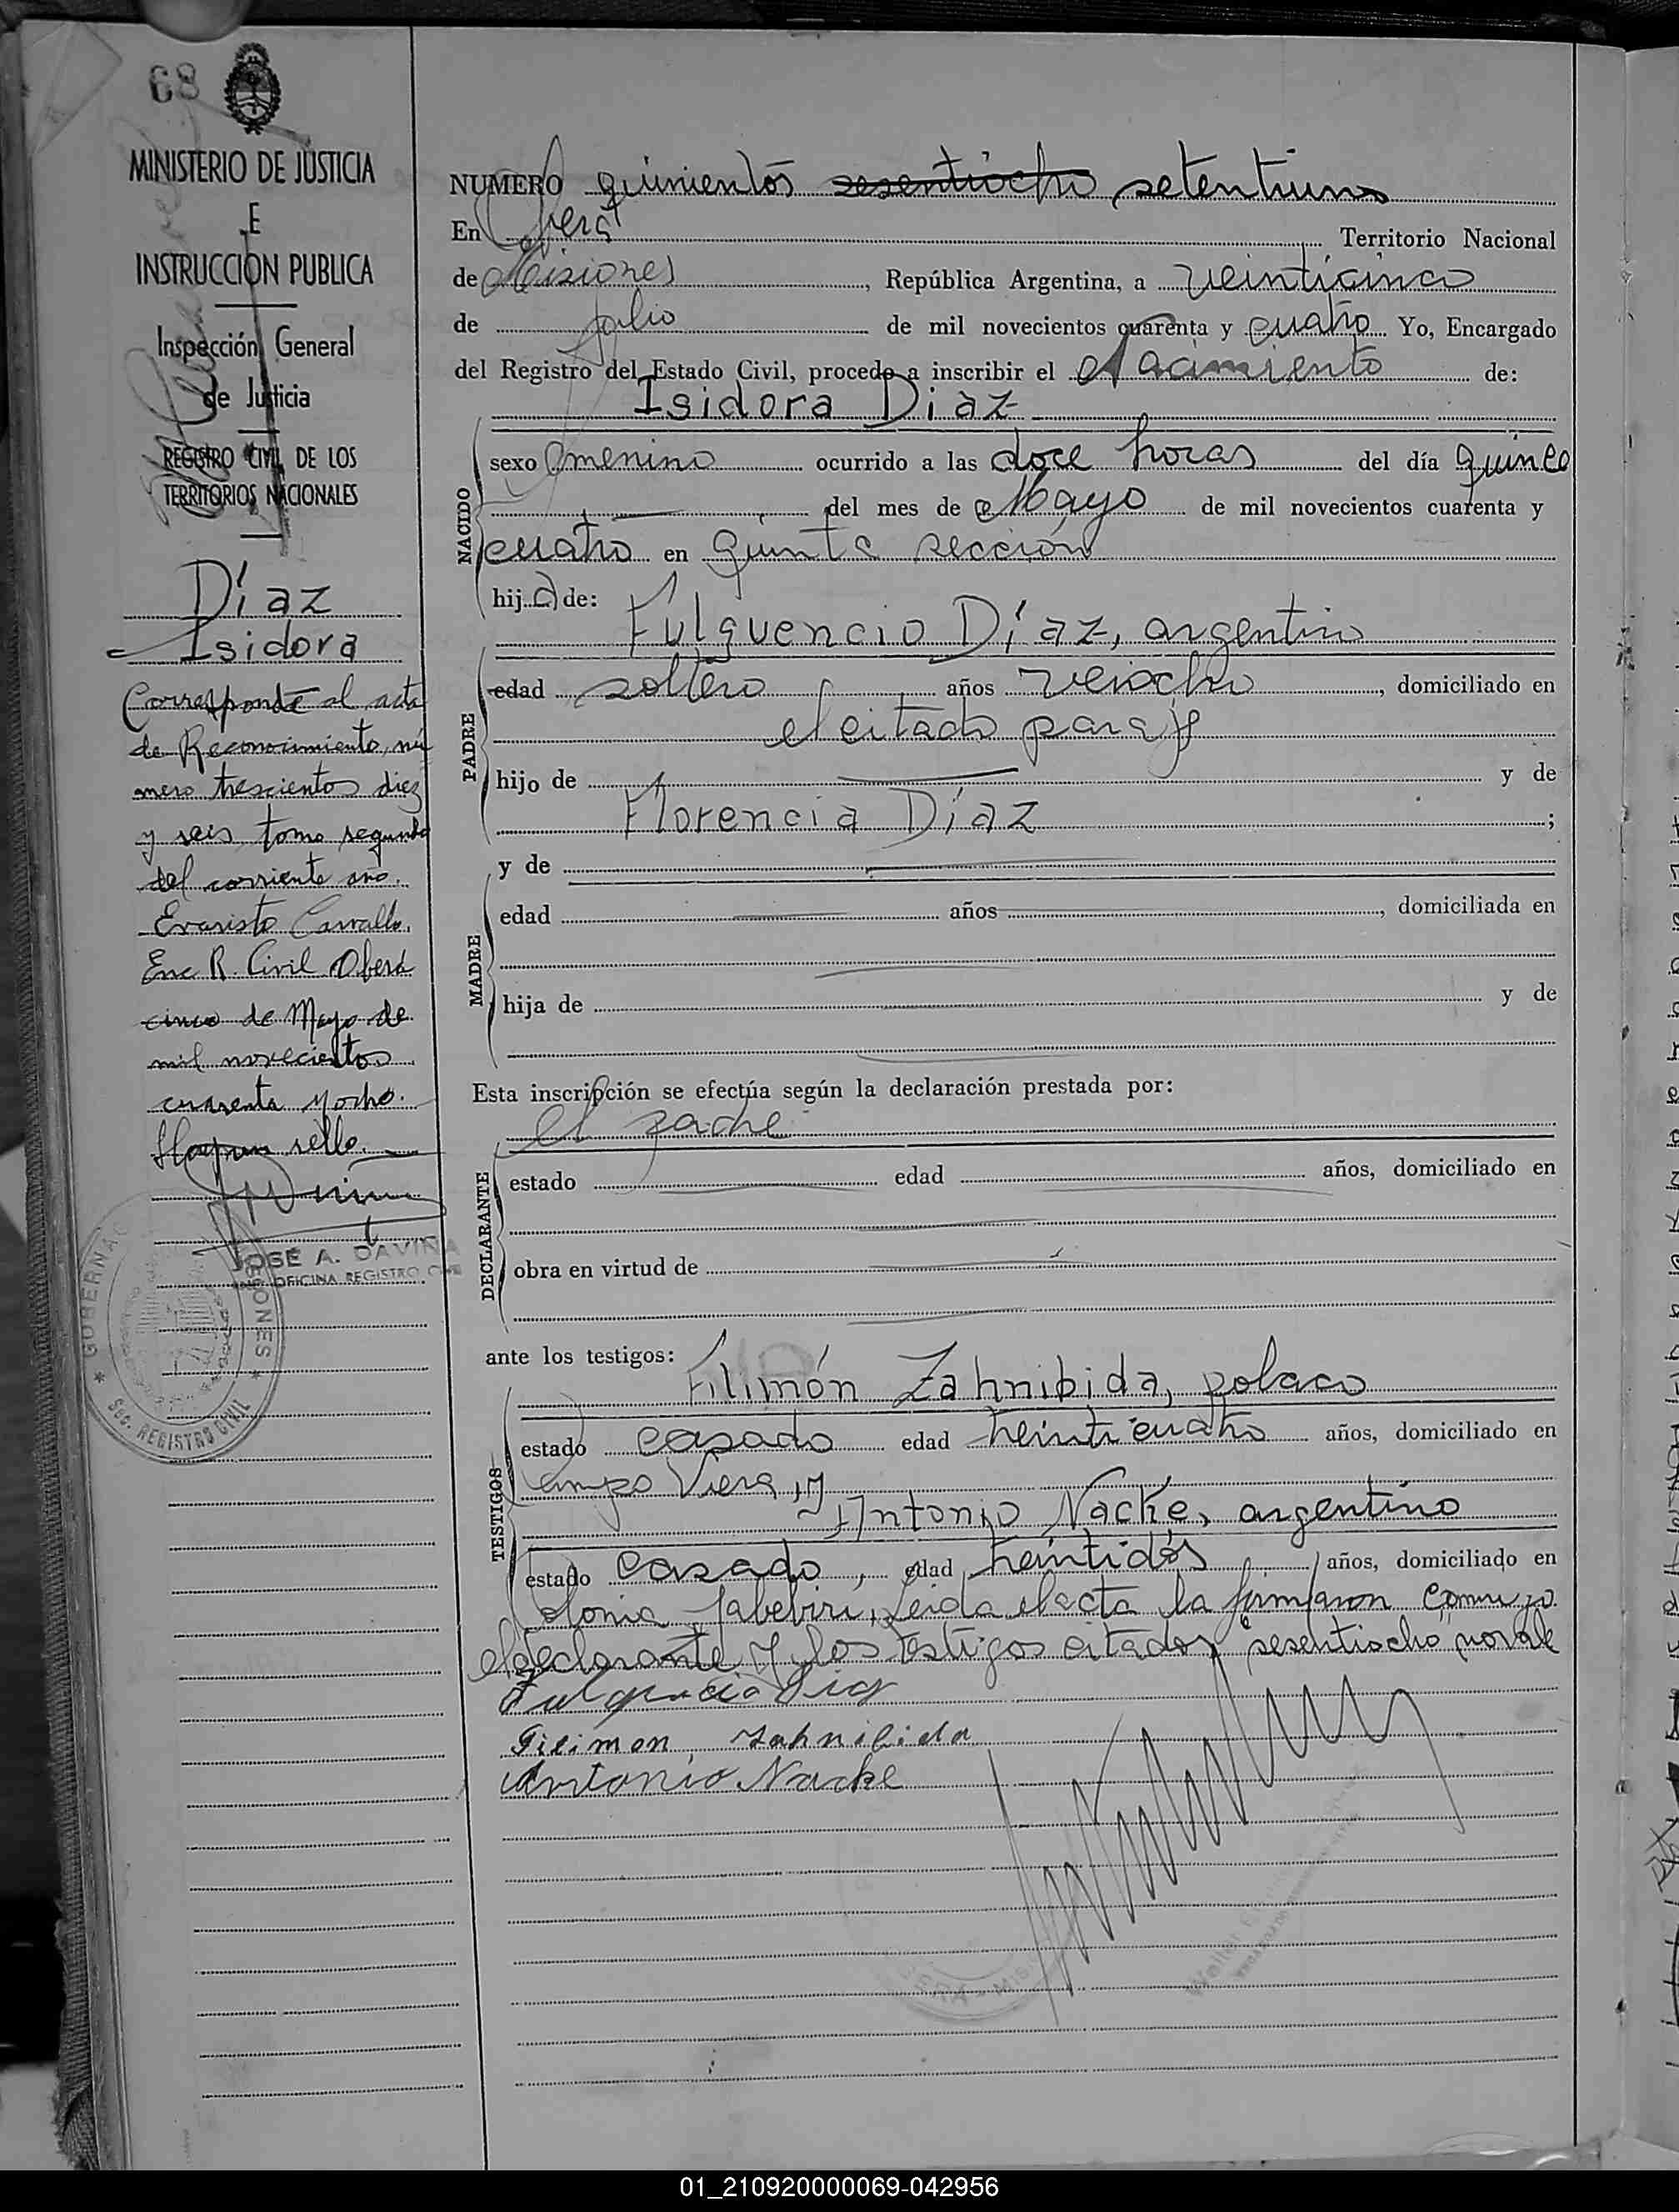 68
MINISTERIO DE JUSTICIA
E
INSTRUCCION PUBLICA
Inspección General
de Justicia
REGISTRO CIVIL DE LOS
TERRITORIOS NACIONALES
Díaz
Isidora
Corresponde al acta
de Reconocimiento, nú
mero trescientos diez
y seis, tomo segundo
del corriente año.
Evaristo Carvallo.
Enc R. Civil Oberá
cinco de Mayo de
mil novecientos
cuarenta y ocho.
sello.
JOSÉ A. DAVIÑA
OFICINA REGISTRO
GOBERNAC
SIONES
SEC. REGISTRO CIVIL
NUMERO quinientos sesentiocho setentiuno
En Oberá Territorio Nacional
de Misiones, República Argentina, a veinticinco
de Julio de mil novecientos cuarenta y cuatro Yo, Encargado
del Registro del Estado Civil, procedo a inscribir el Nacimiento de:
Isidora Díaz
NACIDO
sexo femenino ocurrido a las doce horas del día quince
del mes de Mayo de mil novecientos cuarenta y
cuatro en quinta sección
hija de:
Fulguencio Díaz, argentino
PADRE
edad soltero años, domiciliado en
el citado paraje
hijo de y de
Florencia Díaz;
y de
MADRE
edad años, domiciliada en
hija de y de
Esta inscripción se efectúa según la declaración prestada por:
el padre
DECLARANTE
estado edad años, domiciliado en
obra en virtud de
ante los testigos:
Filimón Zahnibida, polaco
TESTIGOS
estado casado edad treinticuatro años, domiciliado en
Campo Viera, y
Antonio Nacke, argentino
estado casado, edad treintidós años, domiciliado en
Colonia Yabebiri, Leida el acta la firmaron conmigo
el declarante y los testigos citados, "sesentiocho" no vale
Filimon, Zahnibida
Antonio Nacke
01_210920000069-042956